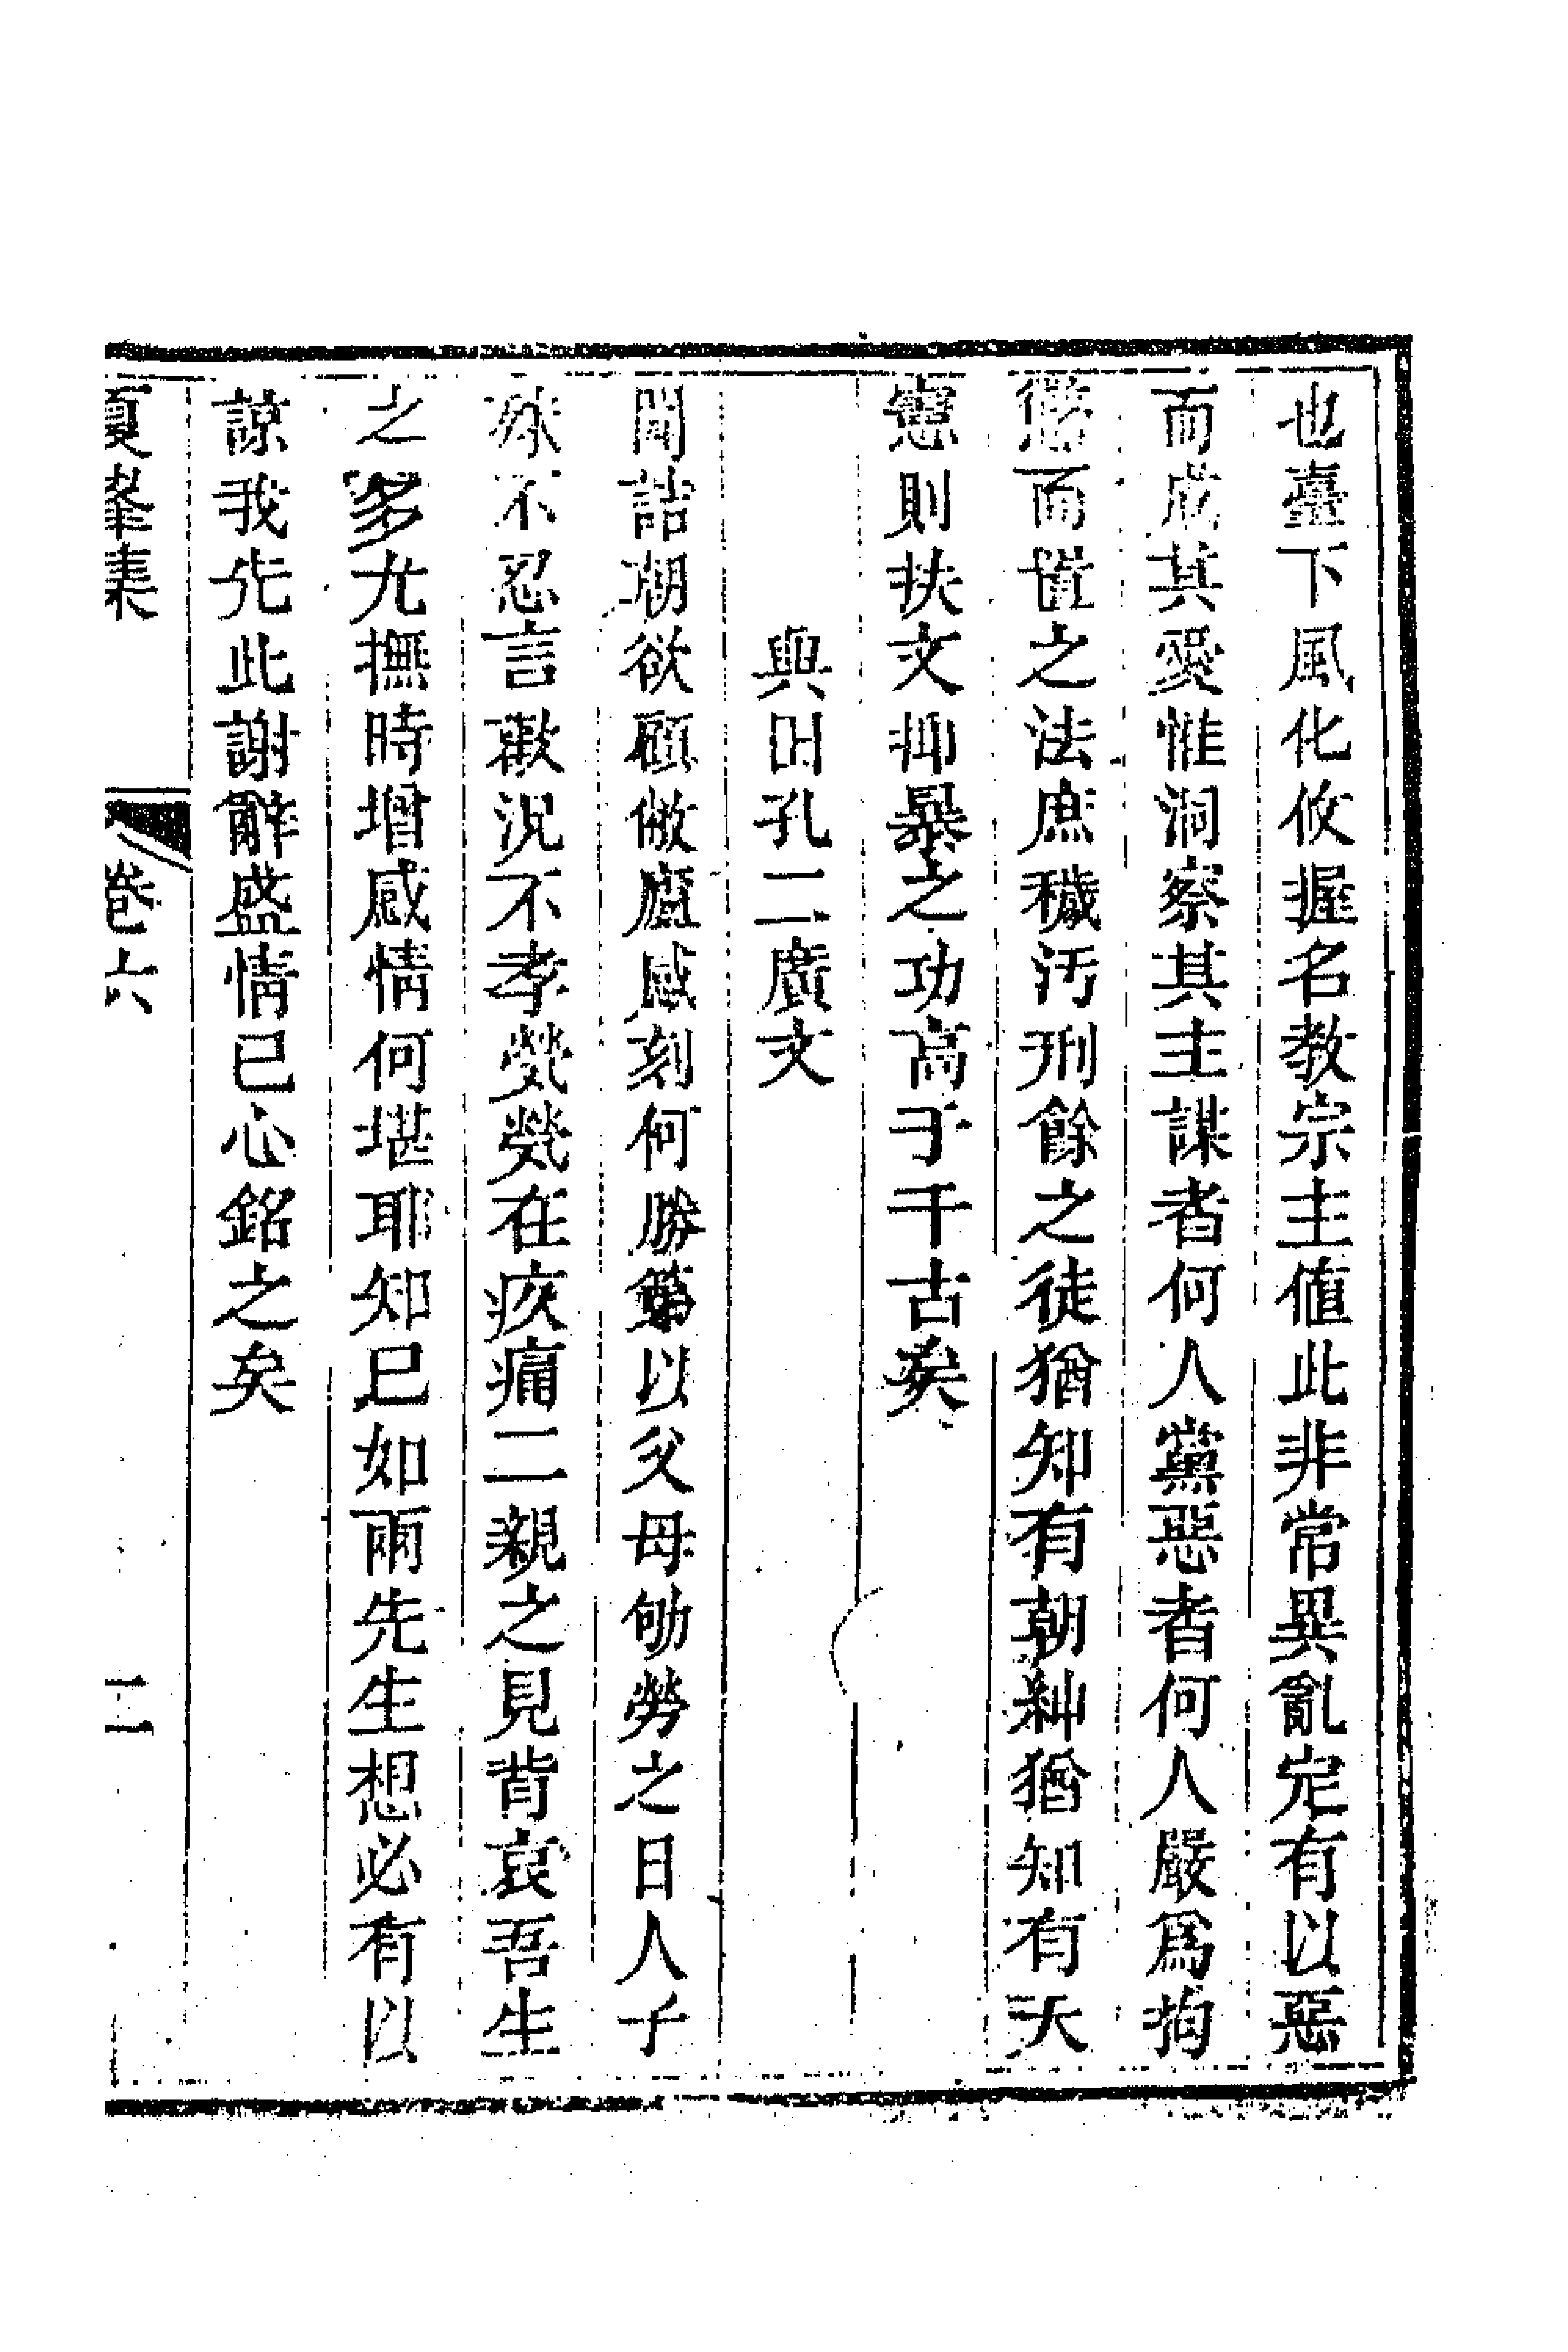 也臺下風化攸握名教宗主值此非常異亂定有以惡
而成其愛惟洞察其主謀者何人黨惡者何人嚴爲拘
懲而置之法庶穢汚刑餘之徒猶知有朝紳猶知有天
憲則扶文抑暴之功高于千古矣
與田孔二廣文
聞詰朝欲顧敝廬感刻何勝第以父母劬勞之日人子
殊不忍言歡況不孝煢煢在疚痛二親之見背哀吾生
之多尤撫時增感情何堪耶知已如兩先生想必有以
諒我先此謝辭盛情已心銘之矣
夏峯集
卷六
二